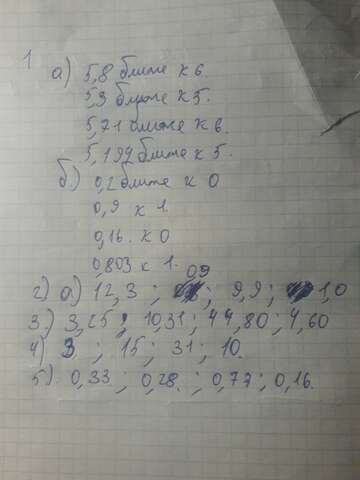 1 а) 5,8 ближе к 6.
5,3 ближе к 5.
5,71 ближе к 6.
5,199 ближе к 5.
б) 0,2 ближе к 0
0,9 к 1.
0,16. к 0
0,803 к 1.
2) а) 12,3 ; 0,9 ; 9,9 ; 1,0
3) 3,25 ; 10,31 ; 44,80 ; 4,60
4) 3 ; 15 ; 31 ; 10.
5) 0,33 ; 0,28. ; 0,77 ; 0,16.